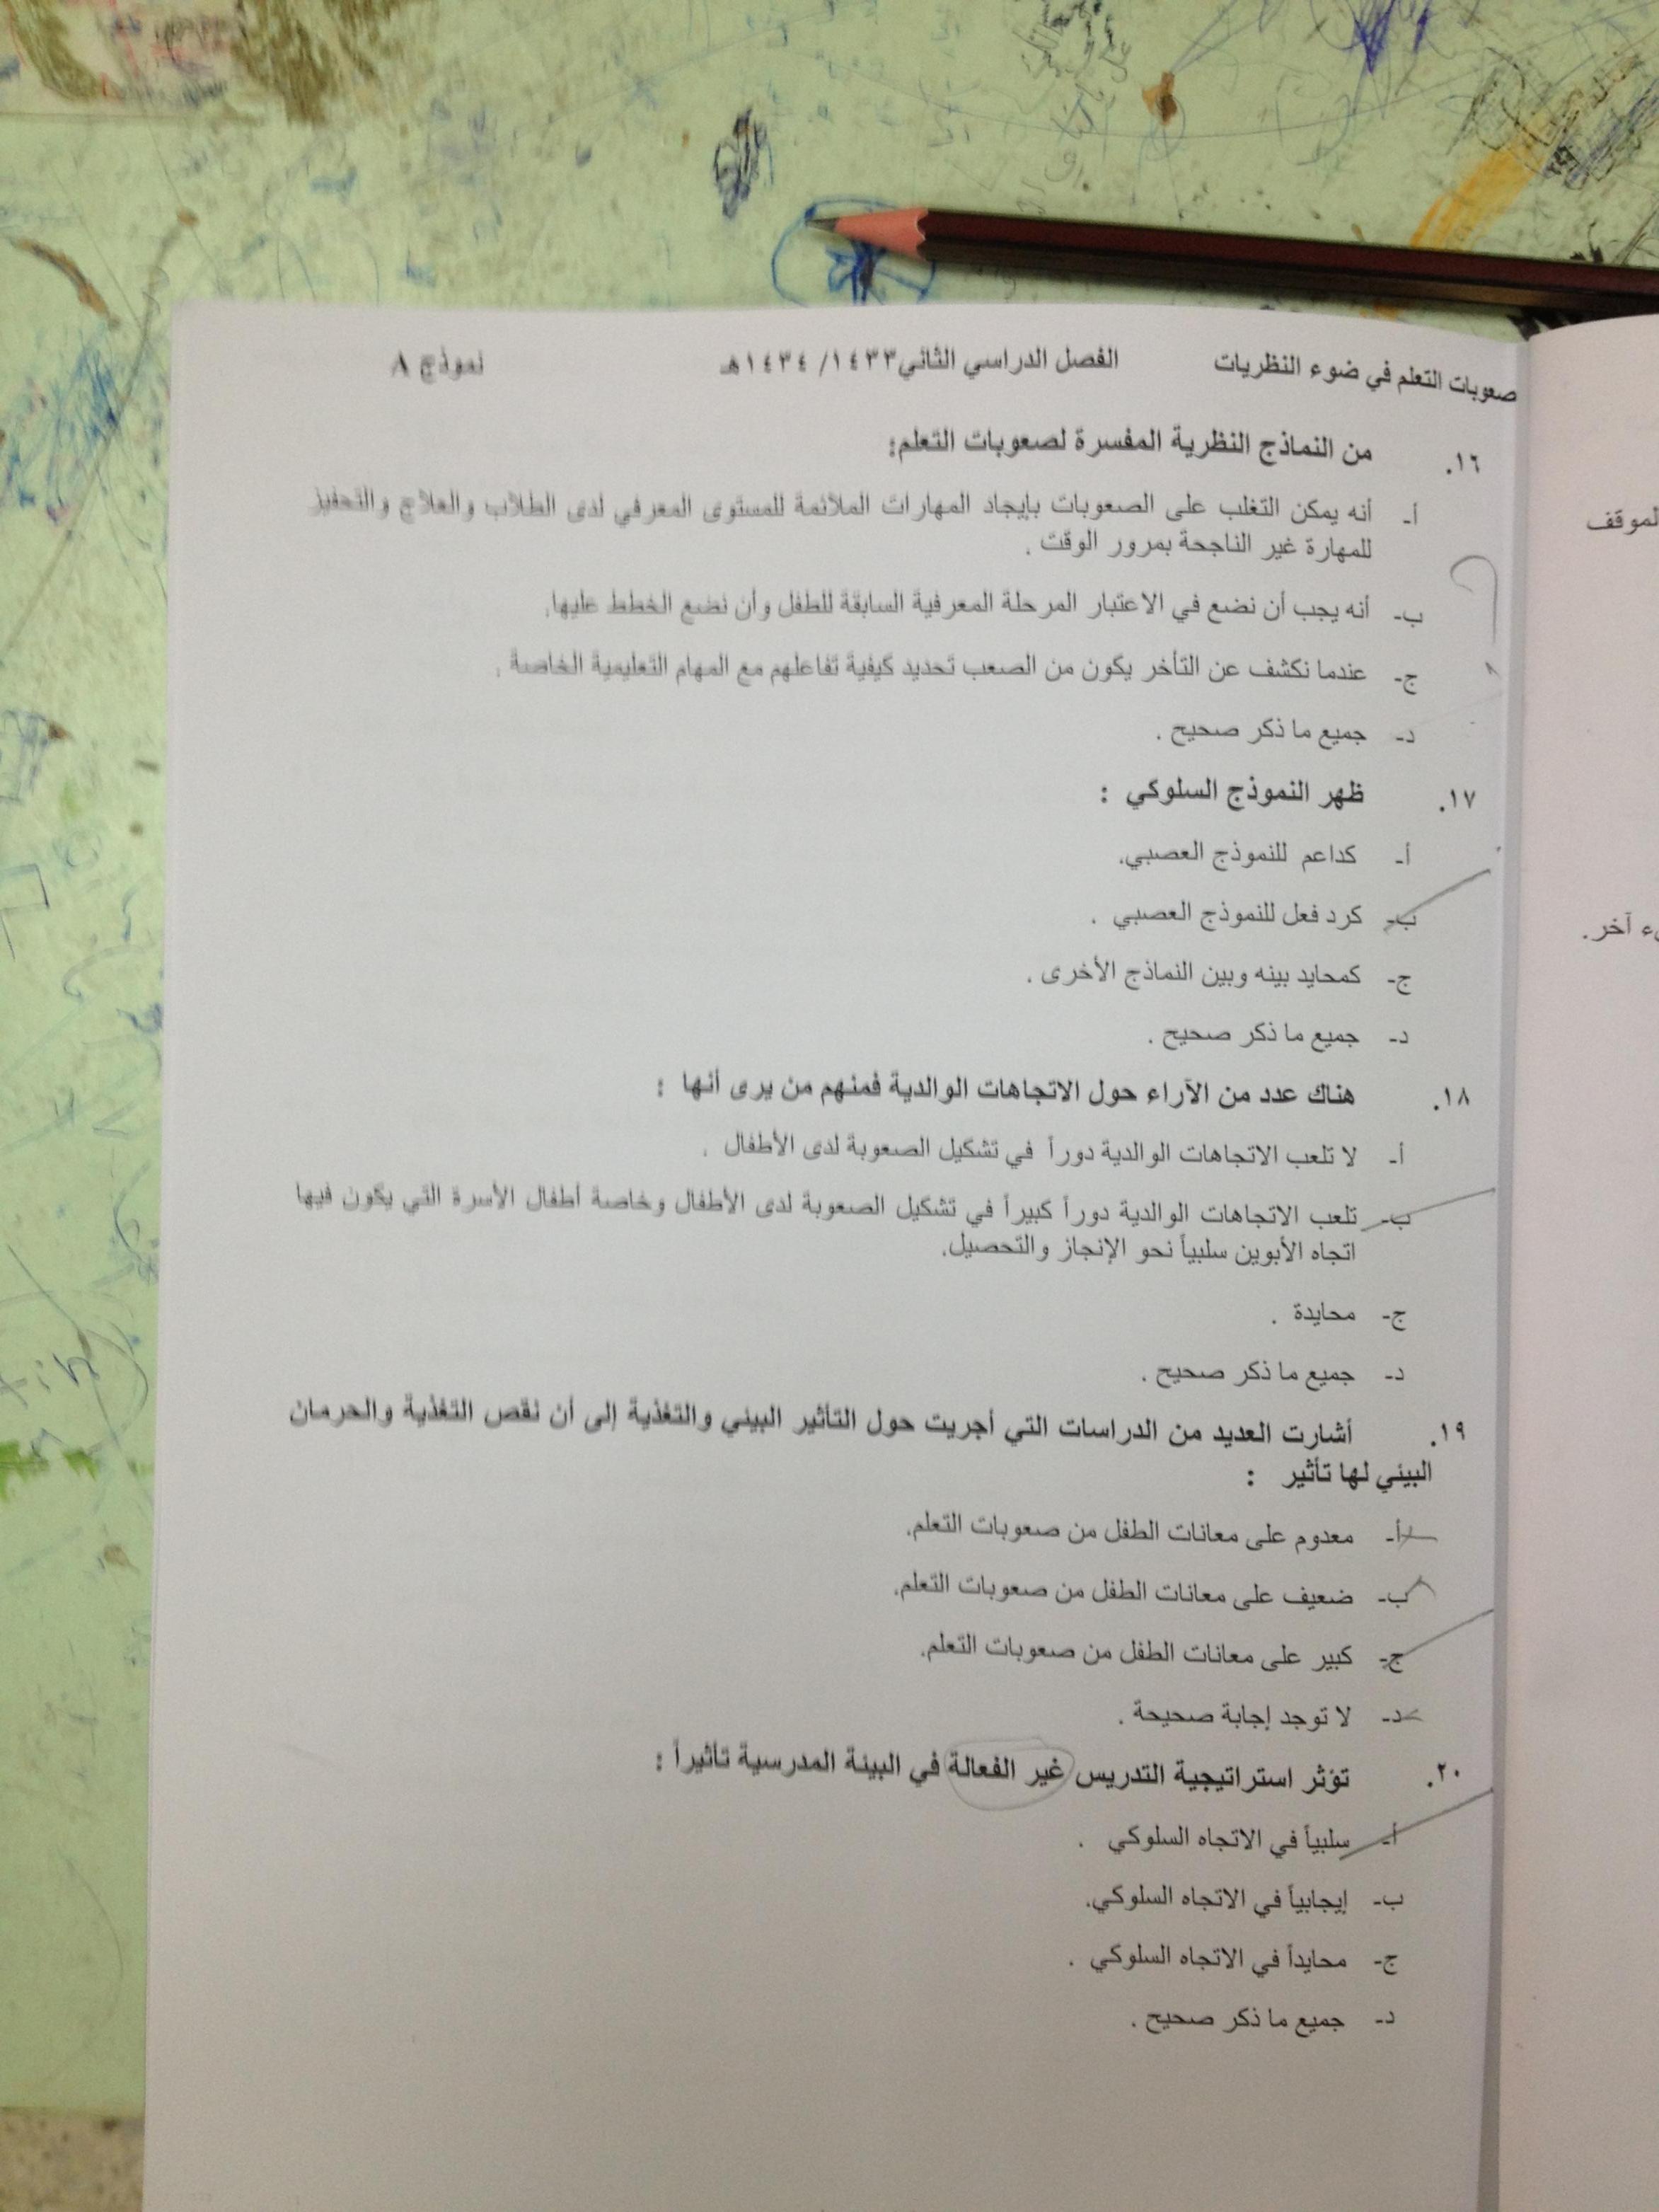 صعوبات التعلم في ضوء النظريات الفصل الدراسي الثاني ١٤٣٣/ ١٤٣٤هـ نموذج A
١٦. من النماذج النظرية المفسرة لصعوبات التعلم:
أ- أنه يمكن التغلب على الصعوبات بإيجاد المهارات الملائمة للمستوى المعرفي لدى الطلاب والعلاج والتحفيز
للمهارة غير الناجحة بمرور الوقت .
ب- أنه يجب أن نضع في الاعتبار المرحلة المعرفية السابقة للطفل وأن نضع الخطط عليها.
ج- عندما نكشف عن التأخر يكون من الصعب تحديد كيفية تفاعلهم مع المهام التعليمية الخاصة .
د- جميع ما ذكر صحيح .
١٧. ظهر النموذج السلوكي :
أ- كداعم للنموذج العصبي.
ب- كرد فعل للنموذج العصبي .
ج- كمحايد بينه وبين النماذج الأخرى .
د- جميع ما ذكر صحيح .
١٨. هناك عدد من الآراء حول الاتجاهات الوالدية فمنهم من يرى أنها :
أ- لا تلعب الاتجاهات الوالدية دوراً في تشكيل الصعوبة لدى الأطفال .
ب- تلعب الاتجاهات الوالدية دوراً كبيراً في تشكيل الصعوبة لدى الأطفال وخاصة أطفال الأسرة التي يكون فيها
اتجاه الأبوين سلبياً نحو الإنجاز والتحصيل.
ج- محايدة .
د- جميع ما ذكر صحيح .
١٩. أشارت العديد من الدراسات التي أجريت حول التأثير البيئي والتغذية إلى أن نقص التغذية والحرمان
البيئي لها تأثير :
أ- معدوم على معانات الطفل من صعوبات التعلم.
ب- ضعيف على معانات الطفل من صعوبات التعلم.
ج- كبير على معانات الطفل من صعوبات التعلم.
د- لا توجد إجابة صحيحة .
٢٠. تؤثر استراتيجية التدريس غير الفعالة في البيئة المدرسية تأثيراً :
أ- سلبياً في الاتجاه السلوكي .
ب- إيجابياً في الاتجاه السلوكي.
ج- محايداً في الاتجاه السلوكي .
د- جميع ما ذكر صحيح .
لموقف
آخر.